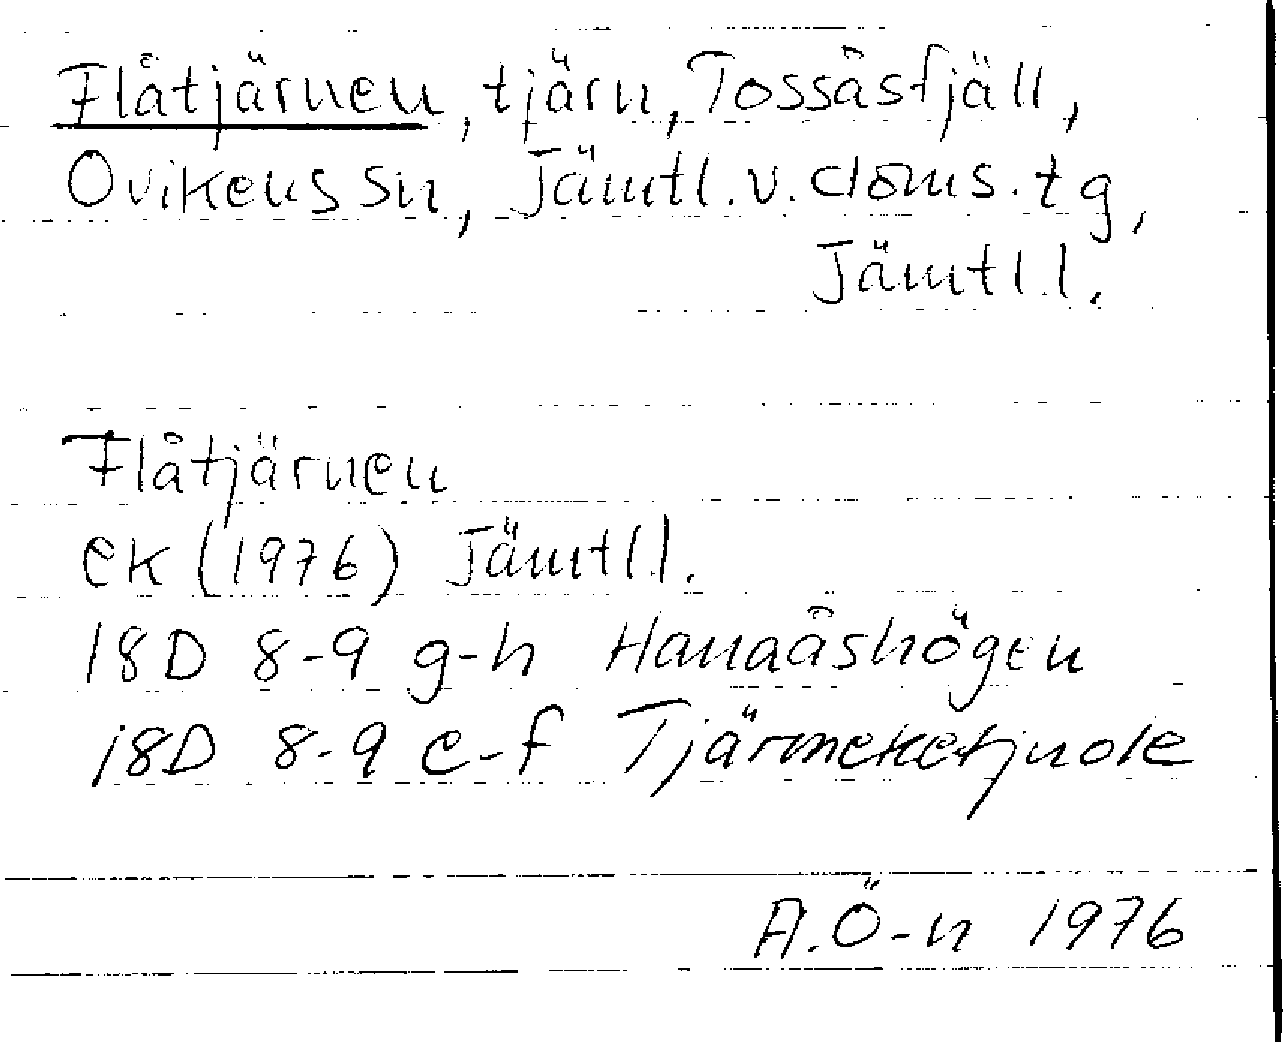 Flåtjärnen, tjärn, Tossåsfjäll,
Ovikens sn, Jämtl. v. doms. tg,
Jämtl l.
Flåtjärnen
ek (1976) Jämtl l.
18D 8-9 g-h Hanaåshögen
18D 8-9 e-f Tjärmeketjuole
A.Ö-n 1976